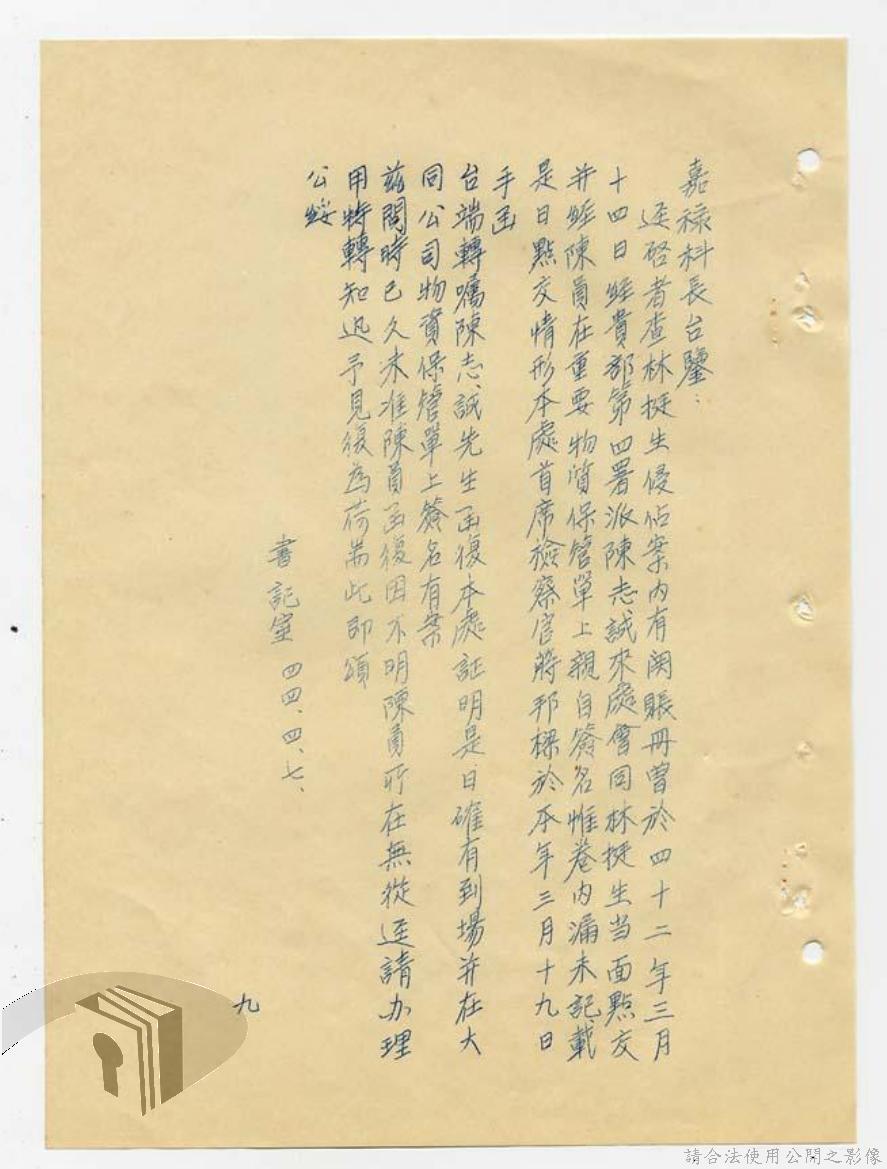 嘉祿科長台鑒：
逕啓者查林挺生侵佔案內有関賬冊曾於四十二年三月
十四日經貴部第四署派陳志誠來處會同林挺生当面點交
并經陳員在重要物資保管單上親自簽名惟卷內漏未記載
是日點交情形本處首席檢察官蔣邦樑於本年三月十九日
手函
台端轉囑陳志誠先生函復本處証明是日確有到場并在大
同公司物資保管單上簽名有案
茲閱時已久未准陳員函復因不明陳員所在無從逕請办理
用特轉知迅予見復為荷耑此即頌
公綏
書記室 四四、四、七、
九
請合法使用公開之影像